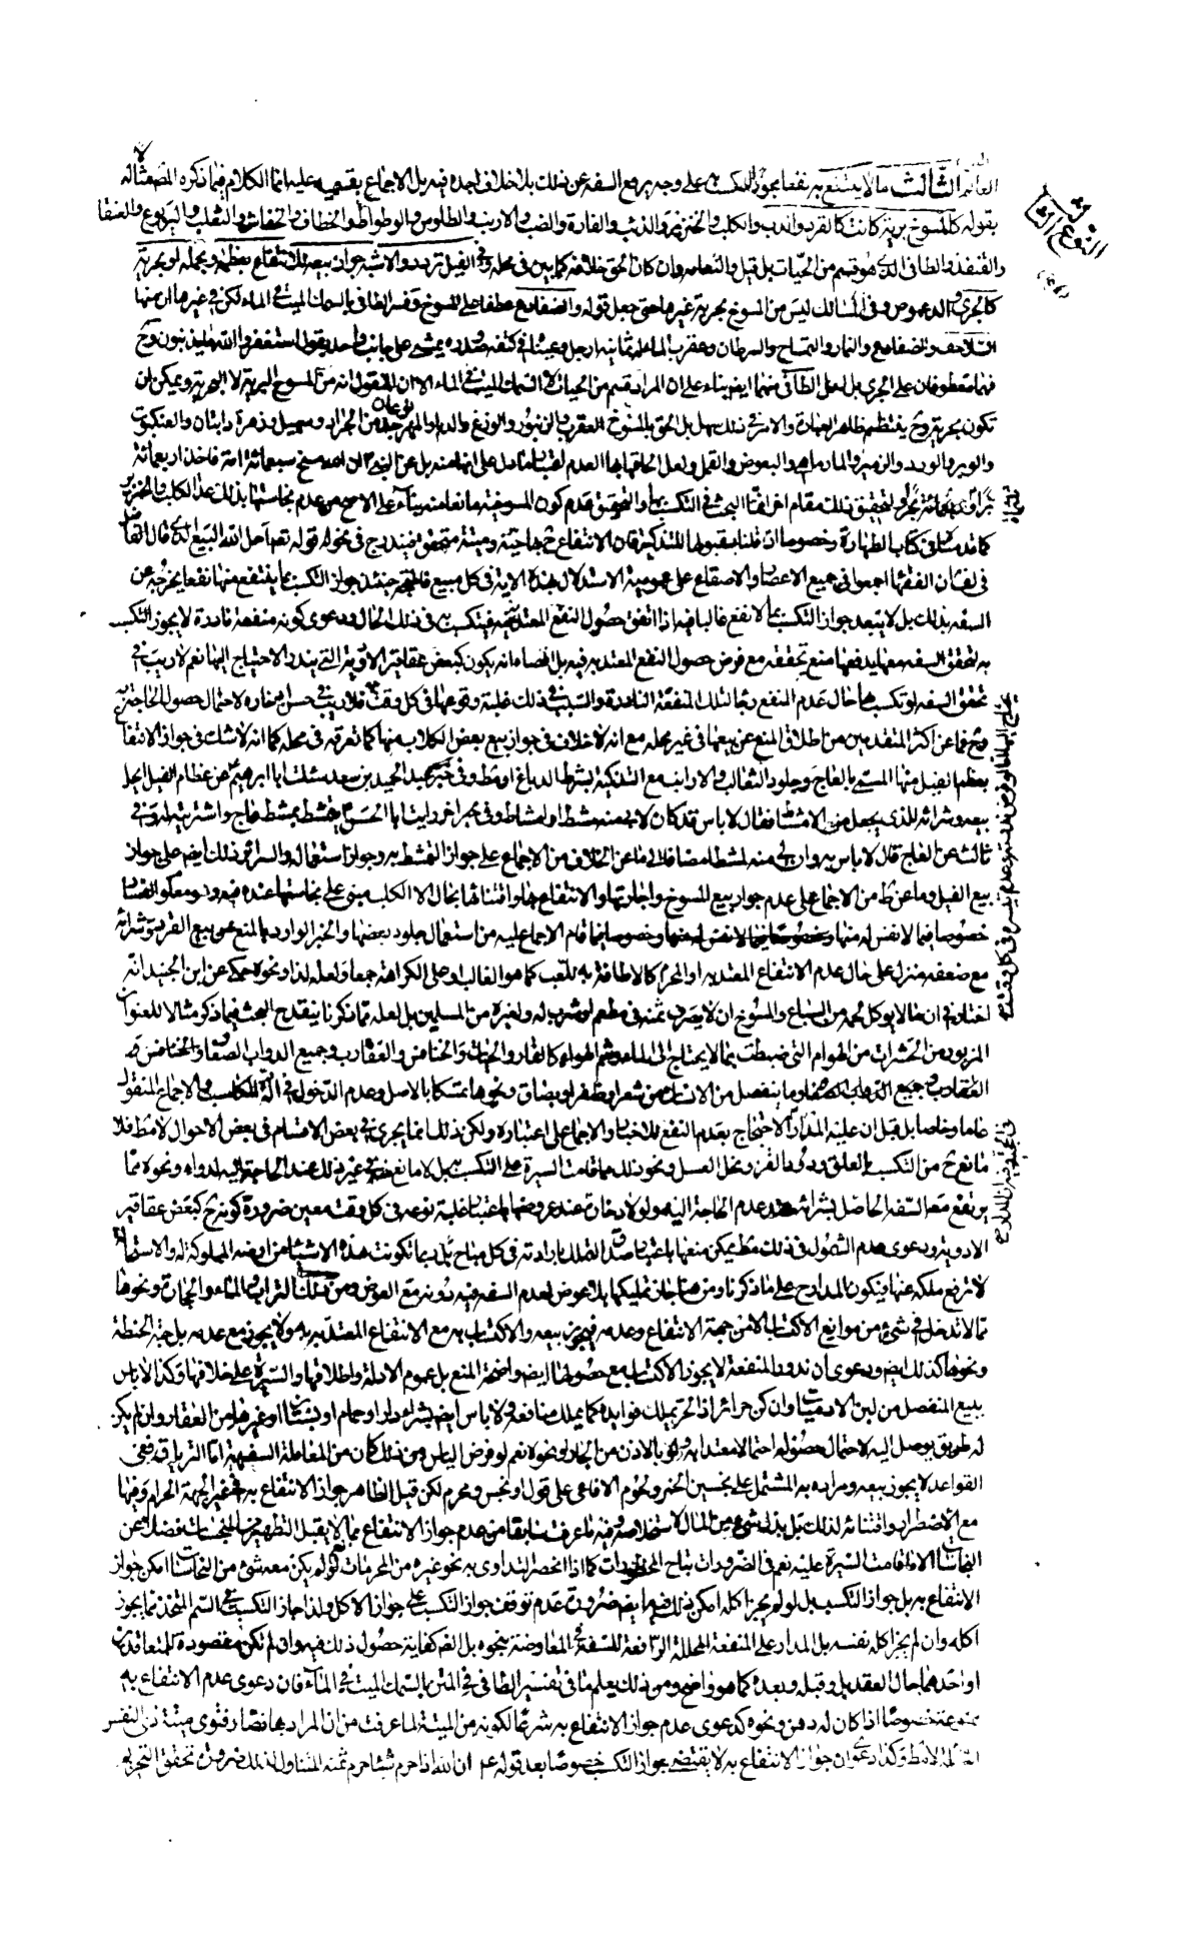 النوع الثالث
الثالث ما لا ينتفع به نفعا يجوز التكسب به على وجه يرفع السفه عن ذلك بلا خلاف اجده فيه بل الاجماع بقسميه عليه انما الكلام فيما ذكره المصنف مثالا له
بقوله كالمسوخ برية كانت كالقرد والدب والكلب والخنزير والذئب والفارة والضب والارنب والطاوس والوطواط والخطاف والخفاش والثعلب واليربوع والعنقا
والقنفذ والطافى الذى هو قسم من الحيات بل قيل والنعامه وان كان الحق خلافه كما بين فى محله وفى الفيل تردد والاشبه جواز بيعه للانتفاع بعظمه وبحمله او بحرية
كالجرى والدعموص وفى المسالك ليس من المسوخ بحرية غيرهما حتى جعل قوله والضفادع عطفا على المسوخ وفسر الطافى بالسمك الميت فى الماء لكن فى غيرها ان منها
السلاحف والضفادع والتمساح والسرطان وعقرب الماء له ثمانية ارجل وعيناه فى كتفه وصدره يمشى على جانب واحد يقول استغفروا الله
فهما معطوفان على الجرى بل لعل الطافى منهما ايضا بناء على ان المراد قسم من الحيات لا السمك الميت فى الماء الا ان المنقول انه من المسوخ البرية لا البحرية ويمكن ان
تكون بحرية وح ينتظم ظاهر العبارة والامر فى ذلك سهل بل الحق بالمسوخ العقرب والزنبور والوزغ نوعان من الجراد وسهيل وزهرة دابتان والعنكبوت
والوبر والورد والزمير والمارماهى والبعوض والقمل ولعل الحاقها بها لعدم
ولتحقيق ذلك مقام اخر انما البحث فى التكسب بها والتحقيق عدم كون المسوخية مانعا منه بناء على الاصح من عدم نجاستها بذلك عدا الكلب والخنزير
كما قدمناه فى كتاب الطهارة وخصوصا اذا قلنا بقبولها للتذكية فان الانتفاع بها حية وميتة متحقق فيندرج فى نحو قوله تعالى احل الله البيع الذى قال الفاضل
فى ان الفقهاء اجمعوا فى جميع الاعصار والاصقاع على عمومية الاستدلال بهذه الاية فى كل مبيع فالمتجه حينئذ جواز التكسب بما ينتفع منها نفعا يخرجه عن
السفه بذلك بل لا يبعد جواز التكسب بما لا نفع غالبا فيه اذا اتفق حصول النفع المعتد به فيتكسب به فى ذلك الحال ودعوى كونه منفعة نادرة لا يجوز التكسب
به لتحقق السفه معها يدفعها منع تحققه مع فرض حصول النفع المعتد به فيه بل اقصاه انه يكون كبعض عقاقير الادوية التى يندر الاحتياج اليها نعم لا ريب فى
تحقق السفه لو تكسب بها حال عدم النفع رجاء لتلك المنفعة النادرة والسبب فى ذلك غلبة وقوعها فى كل وقت فلا ريب فى حسن ادخاره لاحتمال حصول الحاجة اليه
وح فما عن اكثر المتقدمين من اطلاق المنع عن بيعها فى غير محله مع انه لا خلاف فى جواز بيع بعض الكلاب منها كما تعرفه فى محله كما انه لا شك فى جواز الانتفاع
بعظم الفيل منها المسمى بالعاج وجلود الثعالب والارانب مع التذكية بشرط الدباغ او مط وفى خبر عبد الحميد بن سعد سئلت ابا ابراهيم عن عظام الفيل ايحل
بيعه وشرائه الذى يجعل منه الامشاط فقال لا باس قد كان لابى منه مشط او امشاط وفى خبر اخر رايت ابا الحسن يتمشط بمشط عاج واشتريته له وفى
ثالث عن العاج قال لا باس به وان لى منه لمشطا مضافا الى ما عن الخلاف من الاجماع على جواز التمشط به وجواز استعماله والسرائر ذلك ايضا على جواز
بيع الفيل وما عن ط من الاجماع على عدم جواز بيع المسوخ واجارتها والانتفاع بها واقتنائها بحال الا الكلب مبنى على نجاستها عنده
خصوصا فيما لا نفس له منها وخصوصا فيما قام الاجماع عليه من استعمال جلود بعضها والخبر الوارد بالمنع عن بيع القرد وشرائه
مع ضعفه منزل على حال عدم الانتفاع المعتد به او المحرم كالاطافة به للعب كما هو الغالب او على الكراهة جمعا ولعله لذا ونحوه حكى عن ابن الجنيد انه
اختار فى اثمان ما لا يوكل لحمه من السباع والمسوخ ان لا يصرف ثمنه فى مطعم او مشرب له ولغيره من المسلمين بل لعله مما ذكرنا ينقدح البحث فيما ذكر مثالا للعنوان
المزبور من الحشرات من الهوام التى ضبطت بما لا يحتاج الى الماء وشم الهواء كالفار والحيات والخنافس والعقارب وجميع الدواب الصغار والخنافس و
العقارب وجميع الدواب الصغار وما ينفصل من الانسان من شعر او ظفر او بصاق ونحوها تمسكا بالاصل وعدم الدخول فى ادلة المكاسب والاجماع المنقول
عاما وخاصا بل قيل ان عليه المدار والاحتجاج بعدم النفع للاخبار والاجماع على اعتباره ولكن ذلك انما يجرى فى بعض الاقسام فى بعض الاحوال لا مط فلا
مانع ح من التكسب بالعلق ودود القز ونحل العسل ونحو ذلك مما قامت السيرة على التكسب به بل لا مانع فى غير ذلك عند الحاجة اليه لدواء ونحوه مما
يرتفع معه السفه الحاصل بشرائه عند عدم الحاجة اليه ولو لادخاره عند عروضها لما عدم اعتبار غلبة نوعه فى كل وقت معين ضرورة كونه ح كبعض عقاقير
الادوية ودعوى عدم الشمول فى ذلك مط يمكن منعها باعتبار صدق الملك بارادته فى كل مباح بل ربما تكونت هذه الاشياء من ارضه المملوكة له والاستحالة
لا ترفع ملكه عنها فيكون المدار ح على ما ذكرنا ومن هنا جاز تمليكها بلا عوض لعدم السفه فيه دونه مع العوض ومن ذلك التراب والماء والحجارة ونحوها
مما لا تدخل فى شئ من موانع الاكتساب الا من جهة الانتفاع وعدمه فيجوز بيعه والاكتساب به مع الانتفاع المعتد به ولا يجوز مع عدمه بل حبة الحنطة
ونحوها كذلك ايضا ودعوى ان ندور المنفعة لا يجوز الاكتساب مع حصولها ايضا واضحة المنع بل عموم الادلة واطلاقها والسيرة على خلافها وكذا لا باس
ببيع المنفصل من لبن الادميات وان كن حرائر اذ الحر يملك فوايده كما يملك منافعه ولا باس ايضا بشراء دار او حمام او بستان او غيرها من العقار وان لم يكن
له طريق يوصل اليه لاحتمال حصوله احتمالا معتدا به ولو بالاذن من الجار او نحوه نعم لو فرض الياس من ذلك كان من المعاملة السفهية اما الترياق ففى
القواعد لا يجوز بيعه ومراده به المشتمل على نجسين الخمر ولحوم الافاعى على قول او نجس ومحرم لكن قيل الظاهر جواز الانتفاع به فى غير الجهة المحرمة وفيها
مع الاضطرار واقتنائه لذلك بل بذل شئ من المال لاستخلاصه وفيه ما عرفت سابقا من عدم جواز الانتفاع بما لا يقبل التطهير من المتنجسات فضلا عن
النجاسات الا ما قامت السيرة عليه نعم فى الضرورات تباح المحظورات كما اذا انحصر التداوى به نحو غيره من المحرمات ولو لم يكن معه شئ من النجاسات امكن جواز
الانتفاع به بل جواز التكسب بل لو لم يجز اكله امكن ذلك فيه ايضا ضرورة عدم توقف جواز التكسب على جواز الاكل ولذا جاز التكسب فى السم المتخذ مما يجوز
اكله وان لم يجز اكله نفسه بل المدار على المنفعة المحللة الرافعة للسفه فى المعاوضة بنحوه بل الضر كفاية حصول ذلك فيه وان لم تكن مقصودة للمتعاقدين
او احدهما حال العقد بل وقبله وبعده كما هو واضح ومن ذلك يعلم ما فى تفسير الطافى فى المتن بالسمك الميت فى الماء فان دعوى عدم الانتفاع به
ممنوعة خصوصا اذا كان له دهن ونحوه كدعوى عدم جواز الانتفاع به شرعا لكونه من الميتة لما عرفت من ان المراد بها نصا وفتوى ميتة ذى النفس
السائلة لا مط وكذا دعوى ان جواز الانتفاع به لا يقتضى جواز التكسب خصوصا بعد قوله ع ان الله اذا حرم شيئا حرم ثمنه المتناول لذلك ضرورة تحقق التحريم